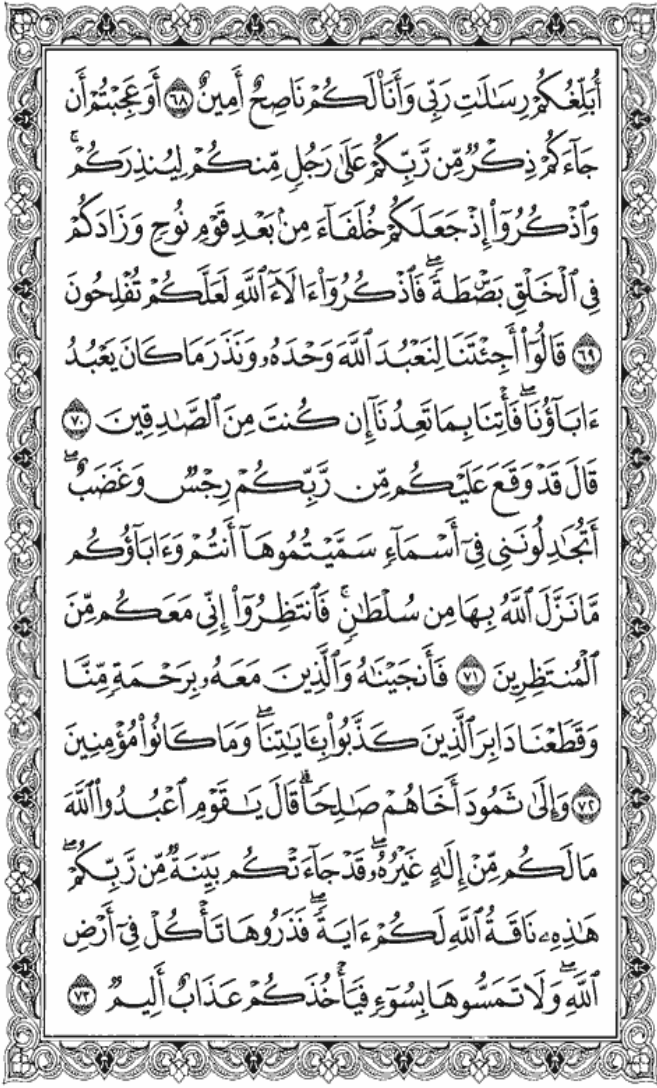 أُبَلِّغُكُمْ رِسَٰلَٰتِ رَبِّى وَأَنَا۠ لَكُمْ نَاصِحٌ أَمِينٌ ٦٨ أَوَعَجِبْتُمْ أَن
جَآءَكُمْ ذِكْرٌ مِّن رَّبِّكُمْ عَلَىٰ رَجُلٍ مِّنكُمْ لِيُنذِرَكُمْ ۚ
وَٱذْكُرُوٓا۟ إِذْ جَعَلَكُمْ خُلَفَآءَ مِنۢ بَعْدِ قَوْمِ نُوحٍ وَزَادَكُمْ
فِى ٱلْخَلْقِ بَصْۜطَةً ۖ فَٱذْكُرُوٓا۟ ءَالَآءَ ٱللَّهِ لَعَلَّكُمْ تُفْلِحُونَ
٦٩ قَالُوٓا۟ أَجِئْتَنَا لِنَعْبُدَ ٱللَّهَ وَحْدَهُۥ وَنَذَرَ مَا كَانَ يَعْبُدُ
ءَابَآؤُنَا ۖ فَأْتِنَا بِمَا تَعِدُنَآ إِن كُنتَ مِنَ ٱلصَّٰدِقِينَ ٧٠
قَالَ قَدْ وَقَعَ عَلَيْكُم مِّن رَّبِّكُمْ رِجْسٌ وَغَضَبٌ ۖ
أَتُجَٰدِلُونَنِى فِىٓ أَسْمَآءٍ سَمَّيْتُمُوهَآ أَنتُمْ وَءَابَآؤُكُم
مَّا نَزَّلَ ٱللَّهُ بِهَا مِن سُلْطَٰنٍ ۚ فَٱنتَظِرُوٓا۟ إِنِّى مَعَكُم مِّنَ
ٱلْمُنتَظِرِينَ ٧١ فَأَنجَيْنَٰهُ وَٱلَّذِينَ مَعَهُۥ بِرَحْمَةٍ مِّنَّا
وَقَطَعْنَا دَابِرَ ٱلَّذِينَ كَذَّبُوا۟ بِـَٔايَٰتِنَا ۖ وَمَا كَانُوا۟ مُؤْمِنِينَ
٧٢ وَإِلَىٰ ثَمُودَ أَخَاهُمْ صَٰلِحًا ۗ قَالَ يَٰقَوْمِ ٱعْبُدُوا۟ ٱللَّهَ
مَا لَكُم مِّنْ إِلَٰهٍ غَيْرُهُۥ ۖ قَدْ جَآءَتْكُم بَيِّنَةٌ مِّن رَّبِّكُمْ ۖ
هَٰذِهِۦ نَاقَةُ ٱللَّهِ لَكُمْ ءَايَةً ۖ فَذَرُوهَا تَأْكُلْ فِىٓ أَرْضِ
ٱللَّهِ ۖ وَلَا تَمَسُّوهَا بِسُوٓءٍ فَيَأْخُذَكُمْ عَذَابٌ أَلِيمٌ ٧٣